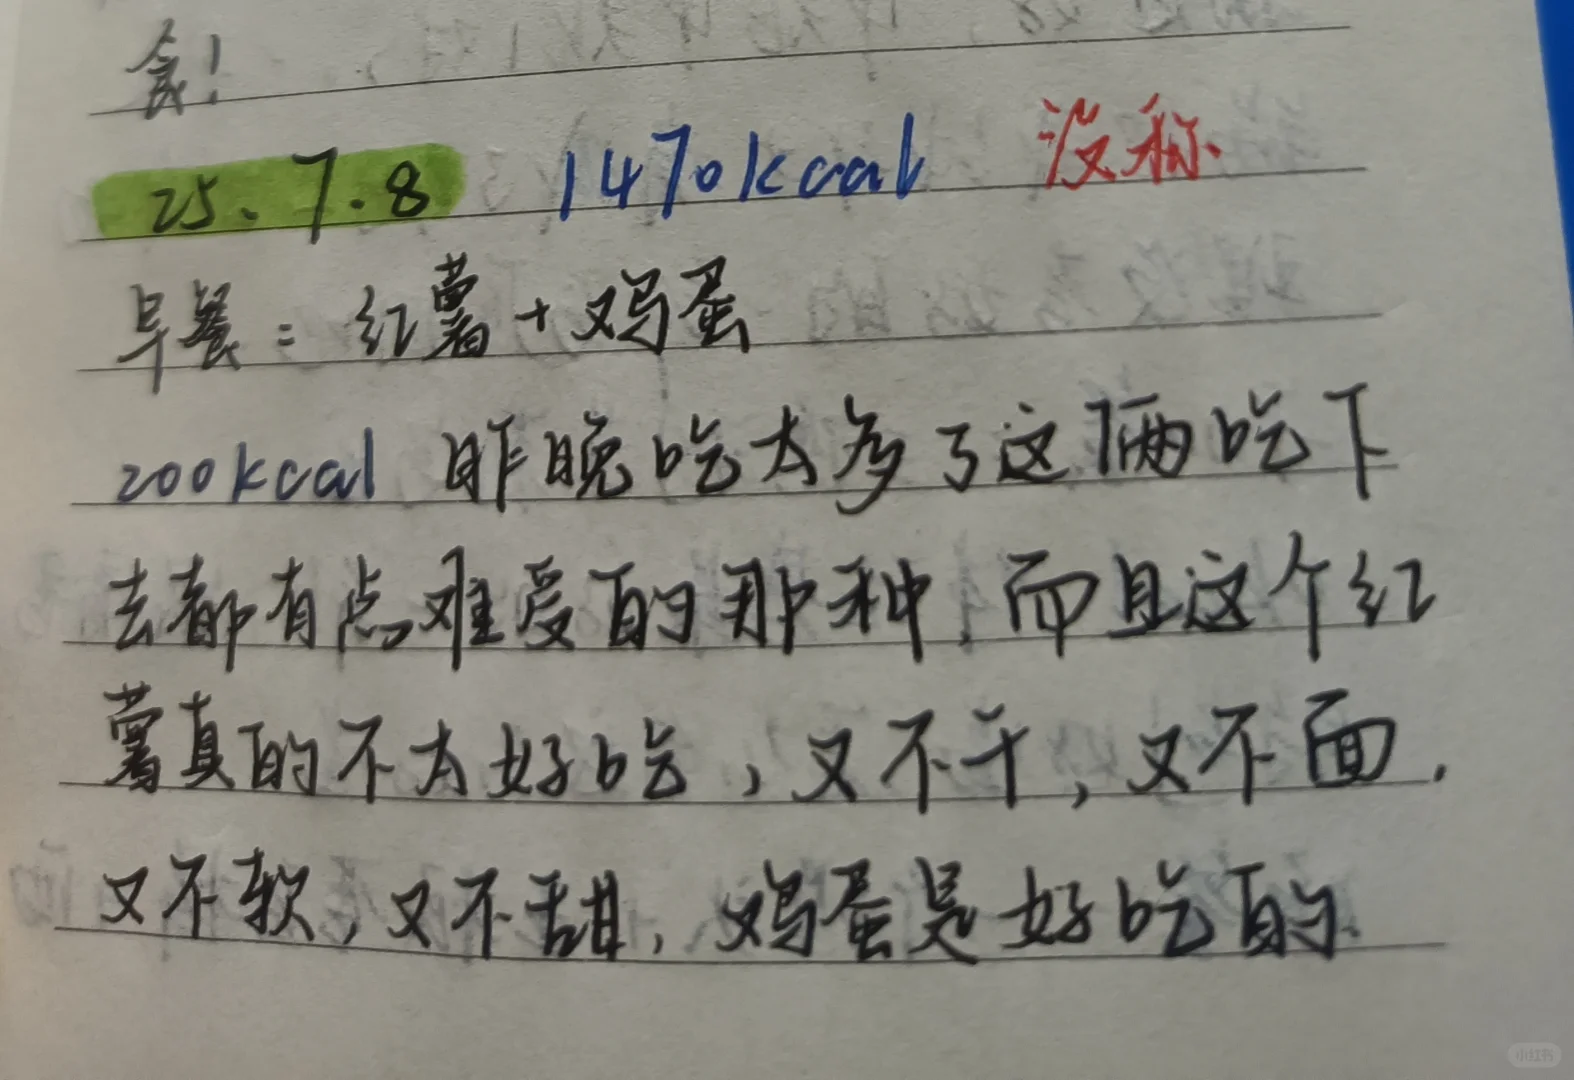 食！
25.7.8 1470kcal 没称
早餐：红薯+鸡蛋
200kcal 昨晚吃太多了这俩吃下
去都有点难受的那种，而且这个红
薯真的不太好吃，又不干，又不面，
又不软，又不甜，鸡蛋是好吃的
小红书